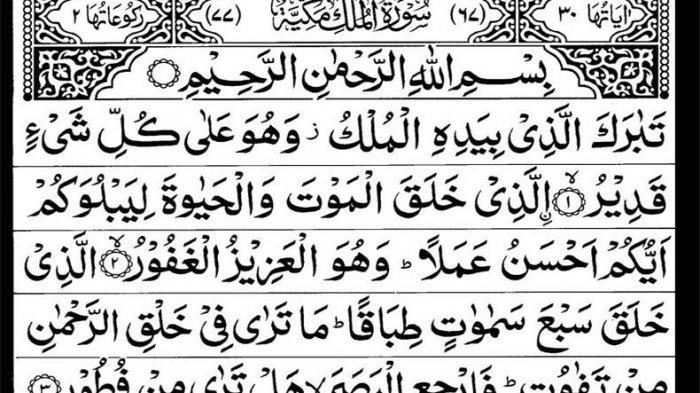 اٰیَاتُهَا ۳۰ (۶۷) سُوْرَةُ الْمُلْكِ مَكِّیَّةٌ (۷۷) رُكُوْعَاتُهَا ۲
بِسْمِ اللّٰهِ الرَّحْمٰنِ الرَّحِیْمِ
تَبٰرَكَ الَّذِیْ بِیَدِهِ الْمُلْكُ ز وَهُوَ عَلٰی كُلِّ شَیْءٍ
قَدِیْرُ ۙ﴿۱﴾ اۨلَّذِیْ خَلَقَ الْمَوْتَ وَالْحَیٰوةَ لِیَبْلُوَكُمْ
اَیُّكُمْ اَحْسَنُ عَمَلًا ؕ وَهُوَ الْعَزِیْزُ الْغَفُوْرُ ۙ﴿۲﴾ الَّذِیْ
خَلَقَ سَبْعَ سَمٰوٰتٍ طِبَاقًا ؕ مَا تَرٰی فِیْ خَلْقِ الرَّحْمٰنِ
مِنْ تَفٰوُتٍ ؕ فَارْجِعِ الْبَصَرَ ۙ هَلْ تَرٰی مِنْ فُطُوْرٍ ﴿۳﴾